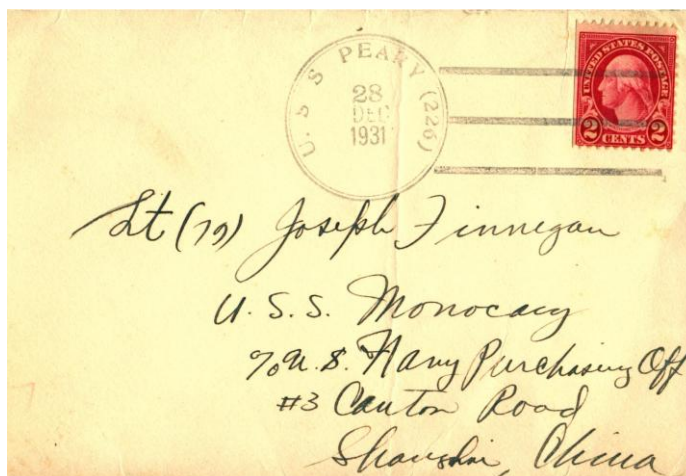 U. S. S. PEARY (226)
28
DEC
1931
UNITED STATES POSTAGE
2 CENTS 2
Lt (jg) Joseph Finnegan
U. S. S. Monocacy
℅ U. S. Navy Purchasing Off
#3 Canton Road
Shanghai, China